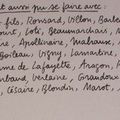 t aussi pu se faire avec :
fils, Ronsard, Villon, Barbe
Loti, Beaumarchais,
, Apollinaire, Malraux,
Boileau, Vigny, Lamartine,
me de Lafayette, Aragon,
mbaud, Verlaine, Giraudoux
, Césaire, Blondin, Marot,